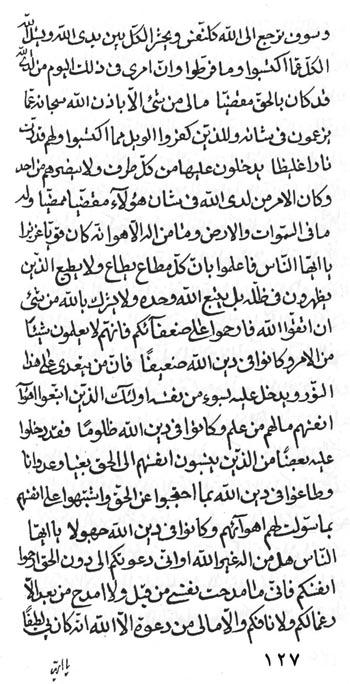 وسوف يرجع الى الله كلّ نفس ويحشر الكلّ بين يدى الله ويسئل الله
الكلّ عمّا اكتسبوا وما فرطوا وانّ امرى فى ذلك اليوم من لدى الله
قد كان بالحقّ مقضيّا مالى من شئ الّا باذن الله سبحانه عمّا
يزعون فى شانه وللذين كفروا الويل مما اكتسبوا ولهم قدّرت
نارا غليظا يدخلون عليها من كلّ طرف ولا يضروهم من احد
وكان الامر من لدى الله فى شان هولآء مقضيّا ممضيّا وله
ما فى السموات والارض وما من اله الّا هو انّه كان قويّا عزيزا
يا ايّها النّاس فاعلموا بانّ كلّ مطاع يطاع ولا يطيع الذين
يظهرون فى ظلّه بل يتبع الله وحده ولا يشرك بالله من شئ
ان اتقوا الله فارحموا على ضعفآئكم فانّهم لا يعلمون شيئا
من الامر وكانوا فى دين الله ضعيفا فانّ من يتعدى على هذا
النّور ويدخل عليه لسوء من نفسه اولئك الذين اتبعوا اهوآء
انفسهم مالهم من علم وكانوا فى دين الله ظلوما فقد دخلوا
عليه بعضا من الذين ينسبون انفسهم الى الحق بغيا وعدوانا
وطاغوا فى دين الله بما احتجبوا عن الحقّ واشتبهوا على انفسهم
بما سولت لهم اهوآئهم وكانوا فى دين الله جهولا يا ايّها
النّاس هل من اله غير الله او انّى دعوتكم الى دون الحق ارحموا
انفسكم فانّى ما مدحت نفسى من قبل ولا امدح من بعد الّا
رغما لكم ولانافكم والّا مالى من دعوة الّا الله انّه كان بى لطيفا
١٢٧